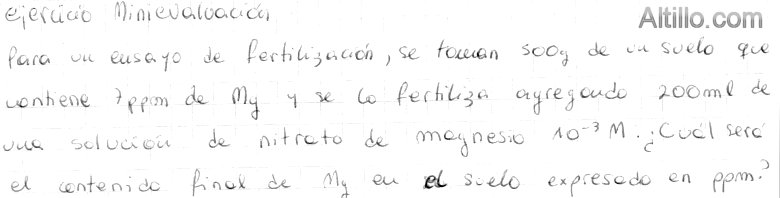 ejercicio Minievaluación
Altillo.com
Para un ensayo de fertilización, se toman 500g de un suelo que
contiene 7ppm de Mg y se lo fertiliza agregando 200ml de
una solución de nitrato de magnesio 10⁻³ M. ¿Cuál será
el contenido final de Mg en el suelo expresado en ppm?